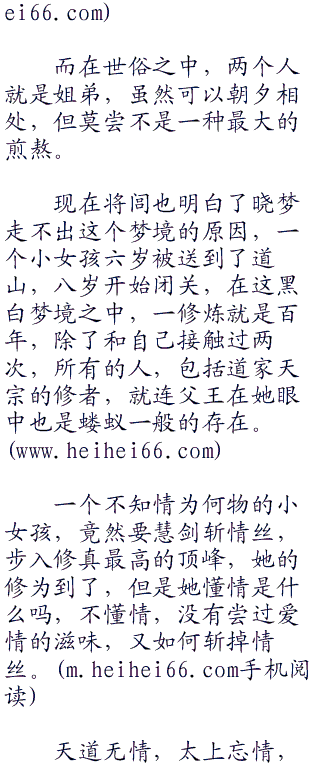 ei66.com)
而在世俗之中，两个人
就是姐弟，虽然可以朝夕相
处，但莫尝不是一种最大的
煎熬。
现在将闾也明白了晓梦
走不出这个梦境的原因，一
个小女孩六岁被送到了道
山，八岁开始闭关，在这黑
白梦境之中，一修炼就是百
年，除了和自己接触过两
次，所有的人，包括道家天
宗的修者，就连父王在她眼
中也是蝼蚁一般的存在。
(www.heihei66.com)
一个不知情为何物的小
女孩，竟然要慧剑斩情丝，
步入修真最高的顶峰，她的
修为到了，但是她懂情是什
么吗，不懂情，没有尝过爱
情的滋味，又如何斩掉情
丝。(m.heihei66.com手机阅
读)
天道无情，太上忘情，